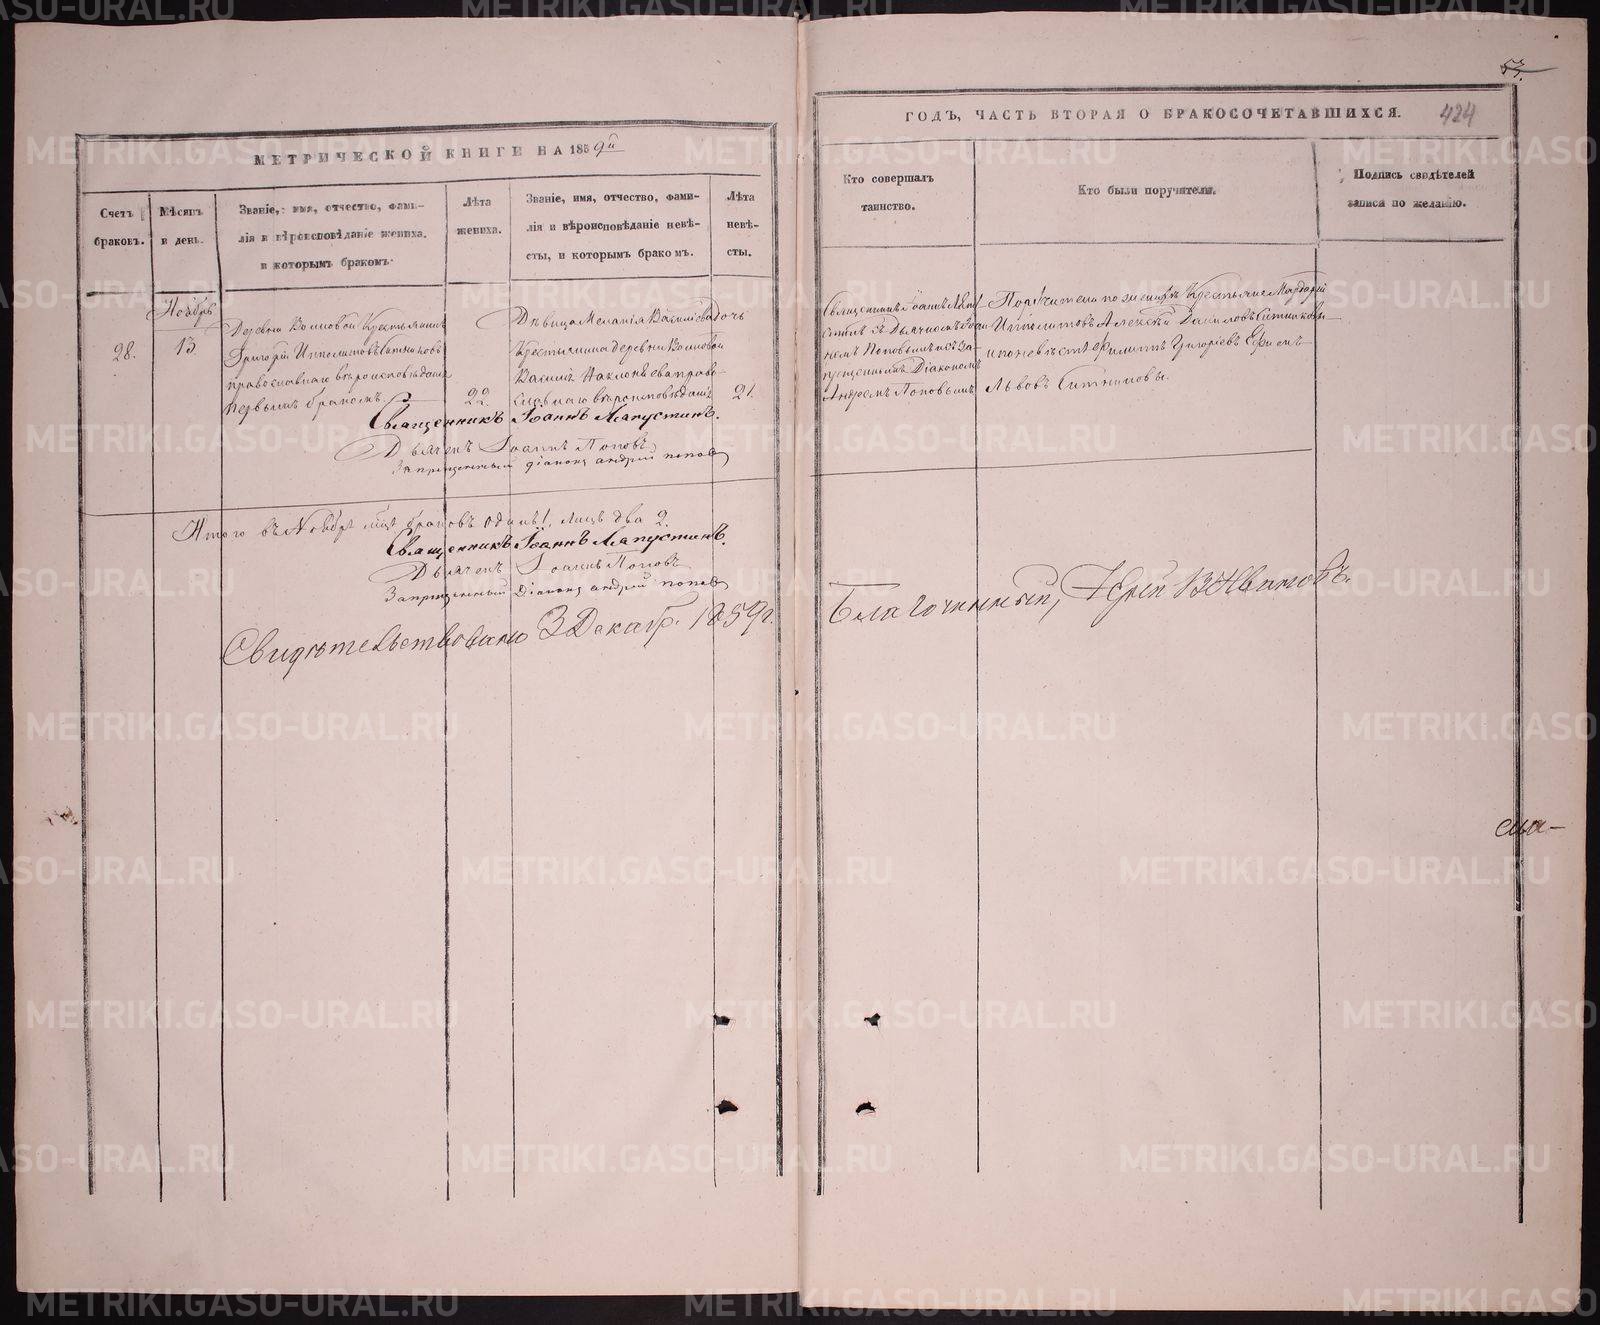 МЕТРИЧЕСКОЙ КНИГЕ НА 1859й
Счетъ браковъ.
Мѣсяцъ и день.
Званіе, имя, отчество, фами-
лія и вѣроисповѣданіе жениха.
и которымъ бракомъ.
Лѣта жениха.
Званіе, имя, отчество, фами-
лія и вѣроисповѣданіе невѣ-
сты, и которымъ бракомъ.
Лѣта невѣ-
сты.
Ноябрь
28.
13.
Деревни Волковой Крестьянинъ
Григорій Ипполитовъ Ситниковъ
православнаго вѣроисповѣданія
первымъ бракомъ.
22.
Дѣвица Меланія Васильева дочь
Крестьянина деревни Волковой
Василія
православнаго вѣроисповѣданія
21.
Священникъ Іоаннъ Лапустинъ.
Дьячекъ Іоаннъ Поповъ
Запрещенный діаконъ андрей попов
Итого въ Ноябрѣ м҃цѣ браковъ одинъ 1, лицъ два 2.
Священникъ Іоаннъ Лапустинъ.
Дьячекъ Іоаннъ Поповъ
Запрещенный Діаконъ андрей попов
Свидѣтельствовано 3 Декабр. 1859 г.
53.
ГОДЪ, ЧАСТЬ ВТОРАЯ О БРАКОСОЧЕТАВШИХСЯ. 424
Кто совершалъ
таинство.
Кто были поручители.
Подпись свидѣтелей
записи по желанію.
Священникъ Іоаннъ Лапу
стинъ съ Дьячкомъ Іоан
номъ Поповымъ и съ за-
прещеннымъ Діакономъ
Андреемъ Поповымъ
Поручители по женихѣ Крестьяне Мардарій
Ипполитовъ Алексѣй Даниловъ Ситниковы
и по невѣстѣ Филиппъ Григорьевъ Ефимъ
Львовъ Ситниковы.
Благочинный, Іерей
METRIKI.GASO-URAL.RU